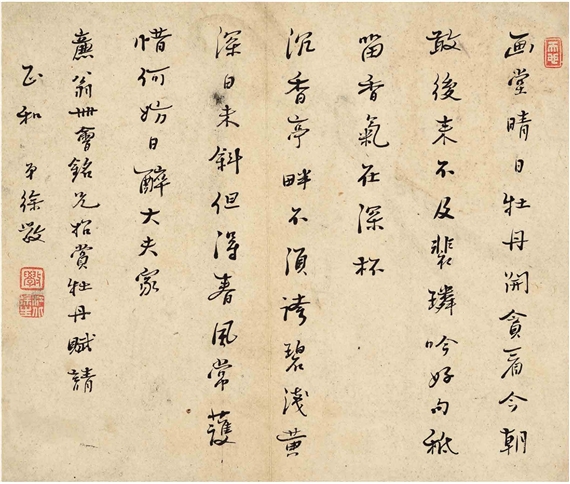 画堂晴日牡丹開貪看今朝
敢後来不及裴璘吟好句秖
留香氣在深杯
沉香亭畔不須誇碧淺黄
深日未斜但得春風常護
惜何妨日醉大夫家
翁會銘兄招賞牡丹賦請
正和 弟徐